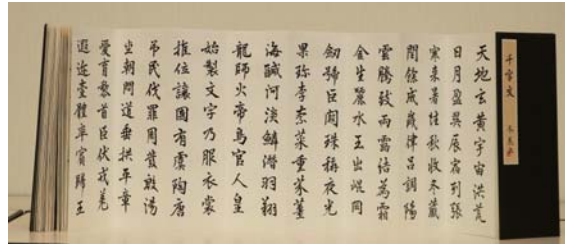 千字文
天地玄黃宇宙洪荒
日月盈昃辰宿列張
寒來暑往秋收冬藏
閏餘成歲律呂調陽
雲騰致雨露結為霜
金生麗水玉出崐岡
劒號巨闕珠稱夜光
果珍李柰菜重芥薑
海鹹河淡鱗潛羽翔
龍師火帝鳥官人皇
始製文字乃服衣裳
推位讓國有虞陶唐
吊民伐罪周發殷湯
坐朝問道垂拱平章
愛育黎首臣伏戎羌
遐迩壹體率賓歸王